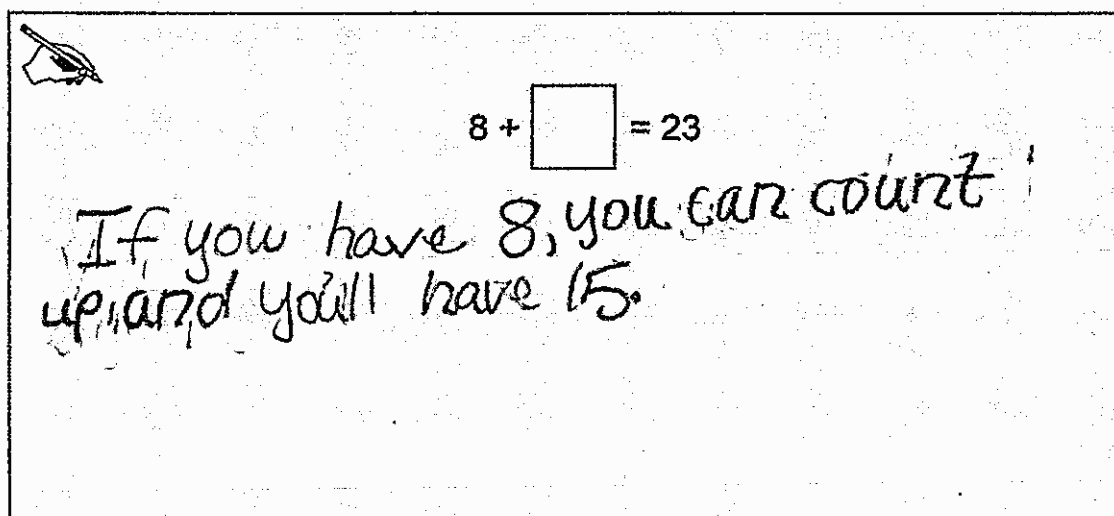 8 + = 23
If you have 8, you can count
up, and you'll have 15.